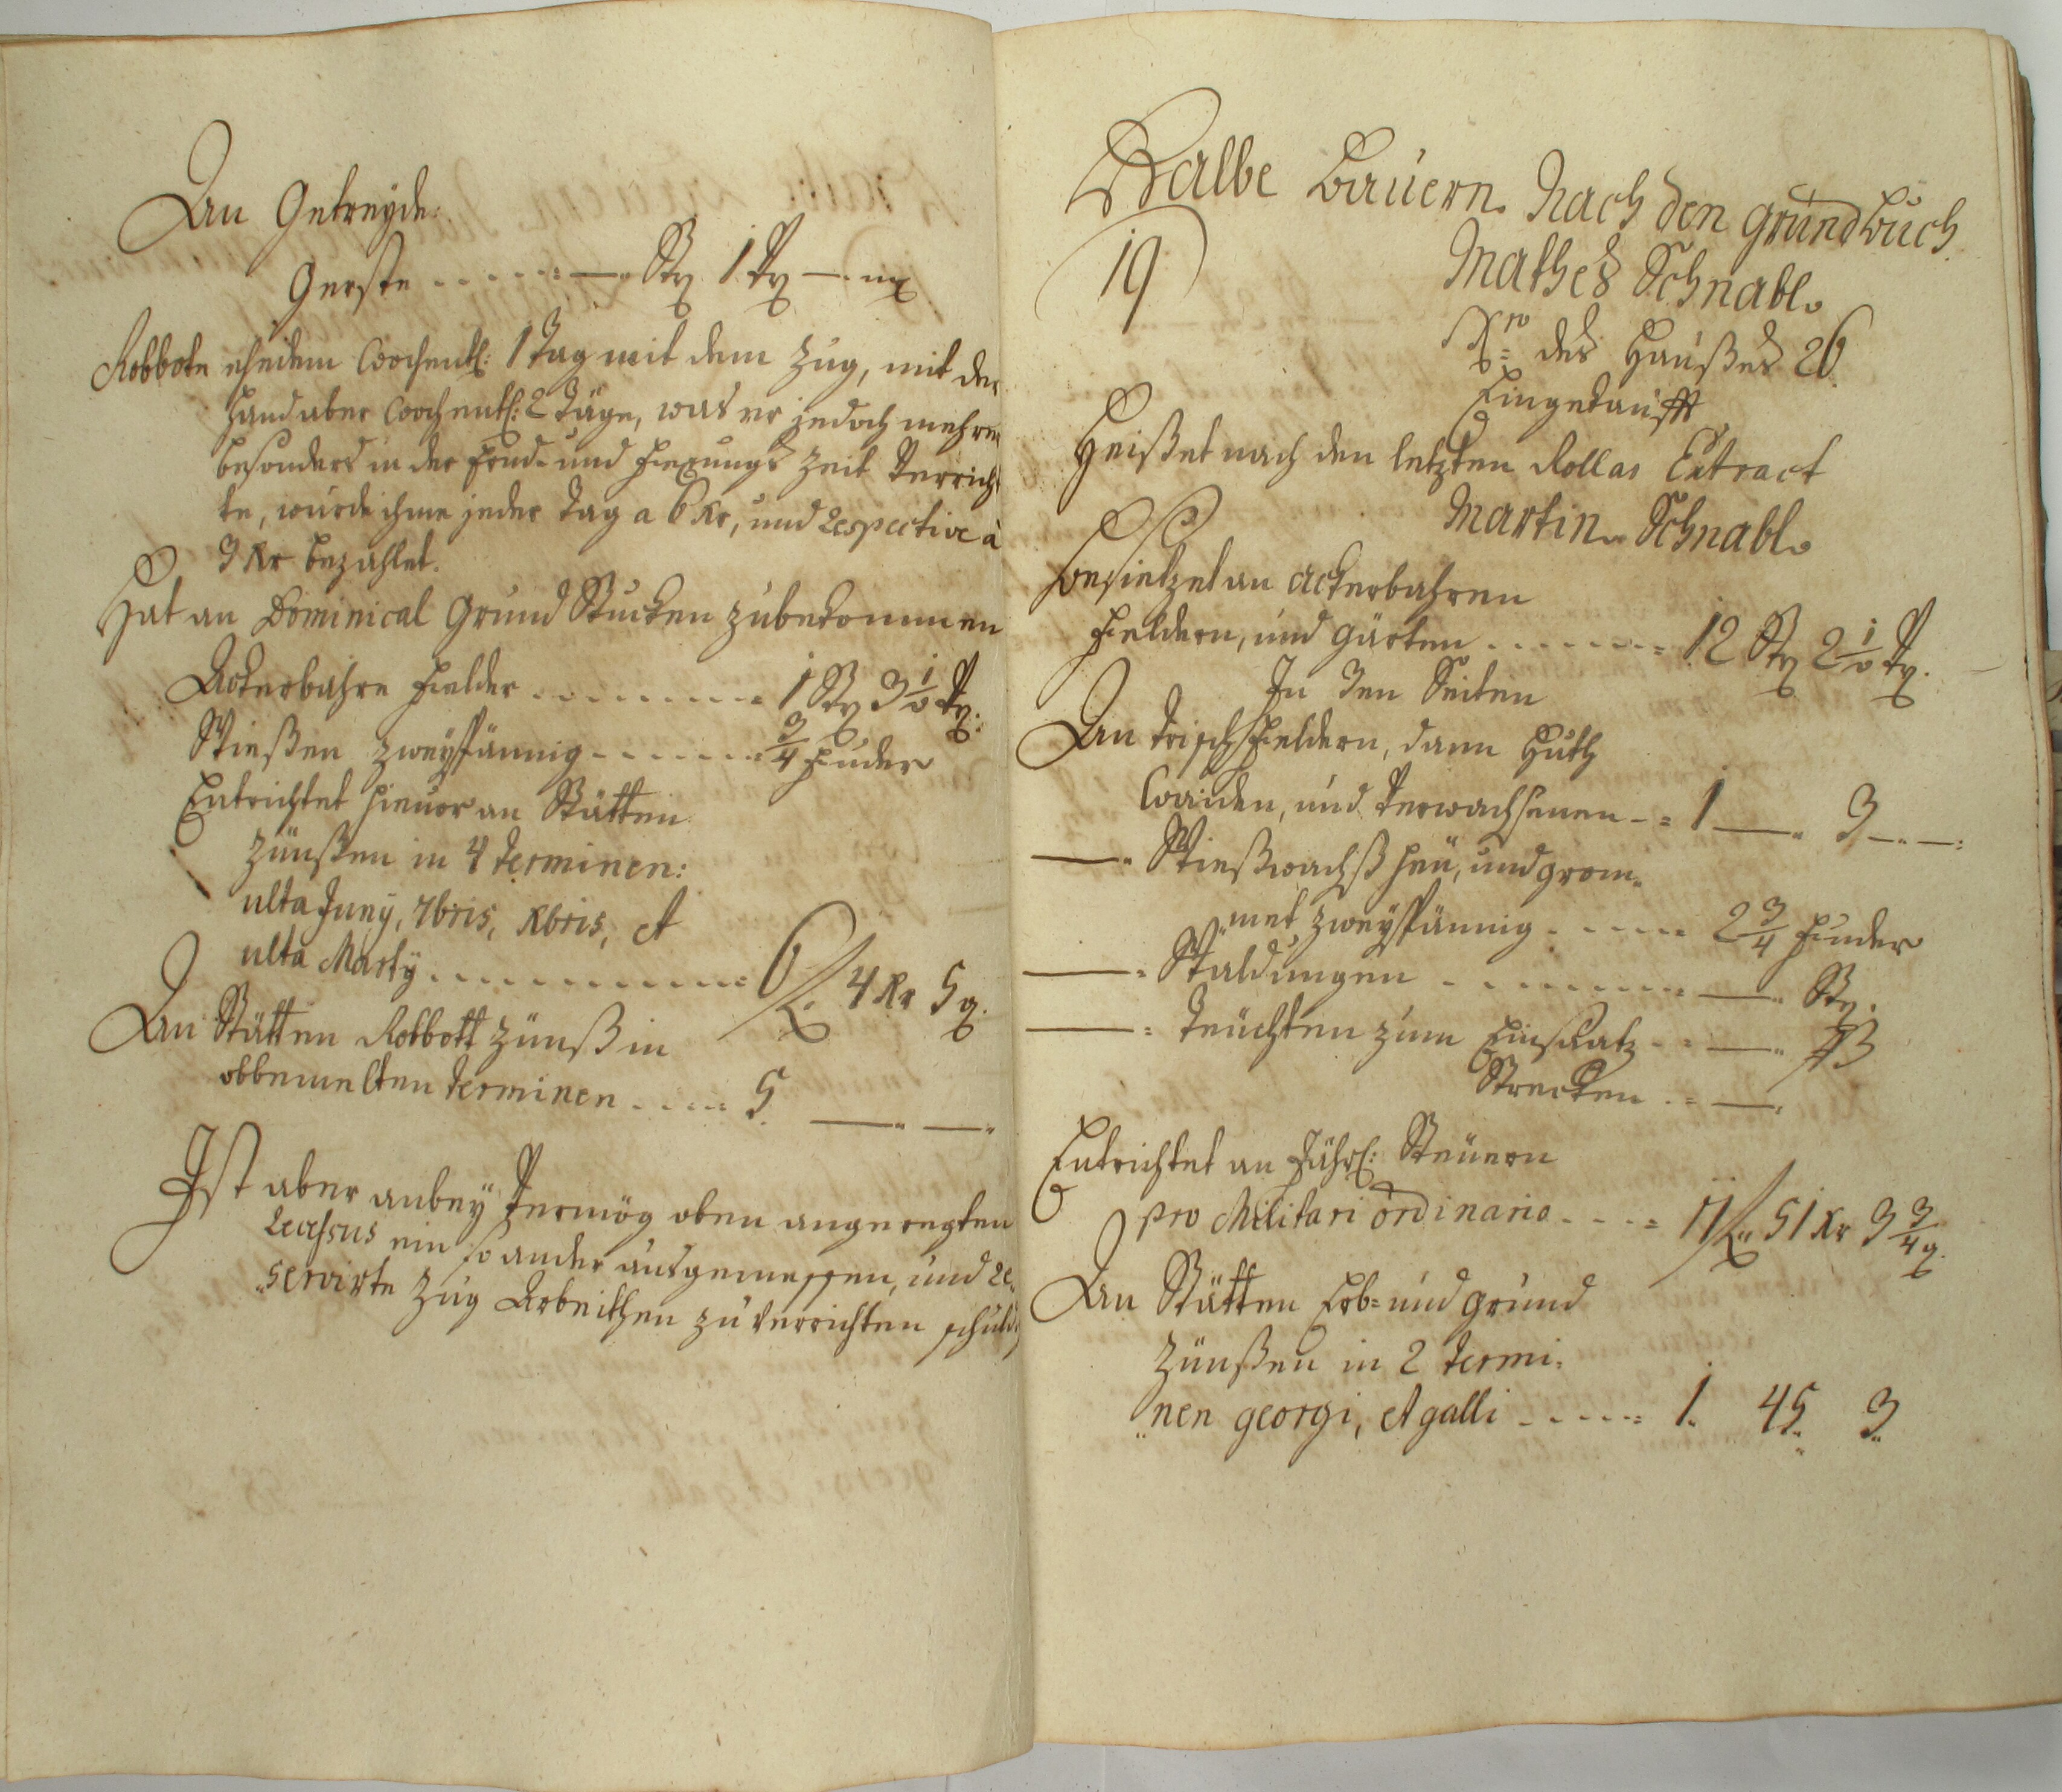 An Getreyde:
Gerste - - - - - - = —" Str 1 Vr —. mx
Robbote ehedem Wochentl: 1 Tag mit dem Zug, mit der
Hand aber Wochentl: 2 Täge, was er jedoch mehrer
besonders in der Ernd- und Fexungs Zeit Verrich¬
te, wurde ihme jeder Tag a 6 Kr, und Respective à
3 Kr bezahlet.
Hat an Dominical Grund Stucken zubekommen
Ackerbahre Felder - - - - - - - - = 1 Str 3 1/2 Vr:
Wießen zweyspännig - - - - - - = 3/4 Fuder
Entrichtet hievor an Stätten
Zünßen in 4 Terminen:
ulta Juny, 7bris, Xbris, et
ulta Marty - - - - - - - - - - - = 6 f. 4 Kr 5 q.
An Stätten Robbott Zünß in
obbemelten Terminen - - - - = 5. —" —"
Ist aber anbey Vermög oben angeregten
Recessus ein so ander ausgemessen, und re¬
"servirte Zug Arbeithen zu verrichten schuld:
Halbe Bauern. Nach den grundbuch.
19 Mathes Schnabl.
Nro des Haußes 26
Eingekaufft
Heißet nach den letzten Rollar Extract
Martin Schnabl.
Besietzet an ackerbahren
Feldern, und Gärten - - - - - - = 12 Str 2 1/2 Vr.
In 3en Seiten
An Trischfeldern, dann Huth
Waiden, und Verwachsenen - = 1 —" 3 —" —:
—" Wießwachß Heu, und grom¬
"met zweyspännig - - - - = 2 3/4 Fuder
—" Waldungen - - - - - - - - = —" Str.
—" Teuchten zum Einsatz - - = —" ß
Strecken - = —"
Entrichtet an Jährl: Steuern
pro Militari ordinario - - - = 11 f. 51 Kr 3 3/4 q.
An Stätten Erb= und grund
Zünßen in 2 Termi¬
"nen georgi, et galli - - - - - = 1. 45. 3.